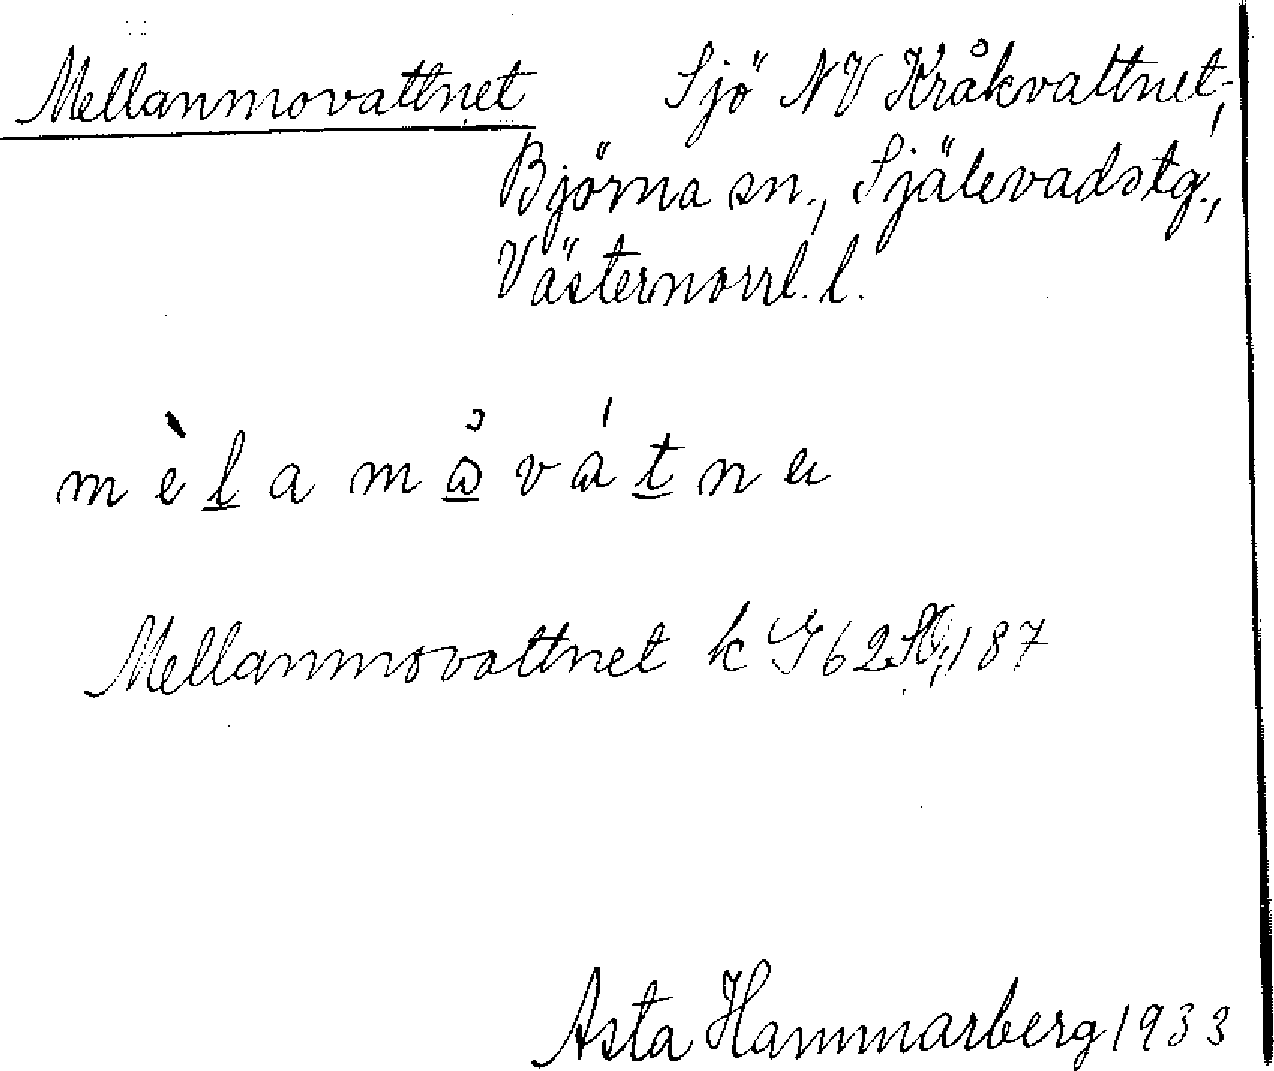 Mellanmovattnet Sjö NV Kråkvattnet,
Björna sn., Själevadstg.,
Västernorrl. l.
mèlamåvátne
Mellanmovattnet k G62SO, 187
Asta Hammarberg 1933